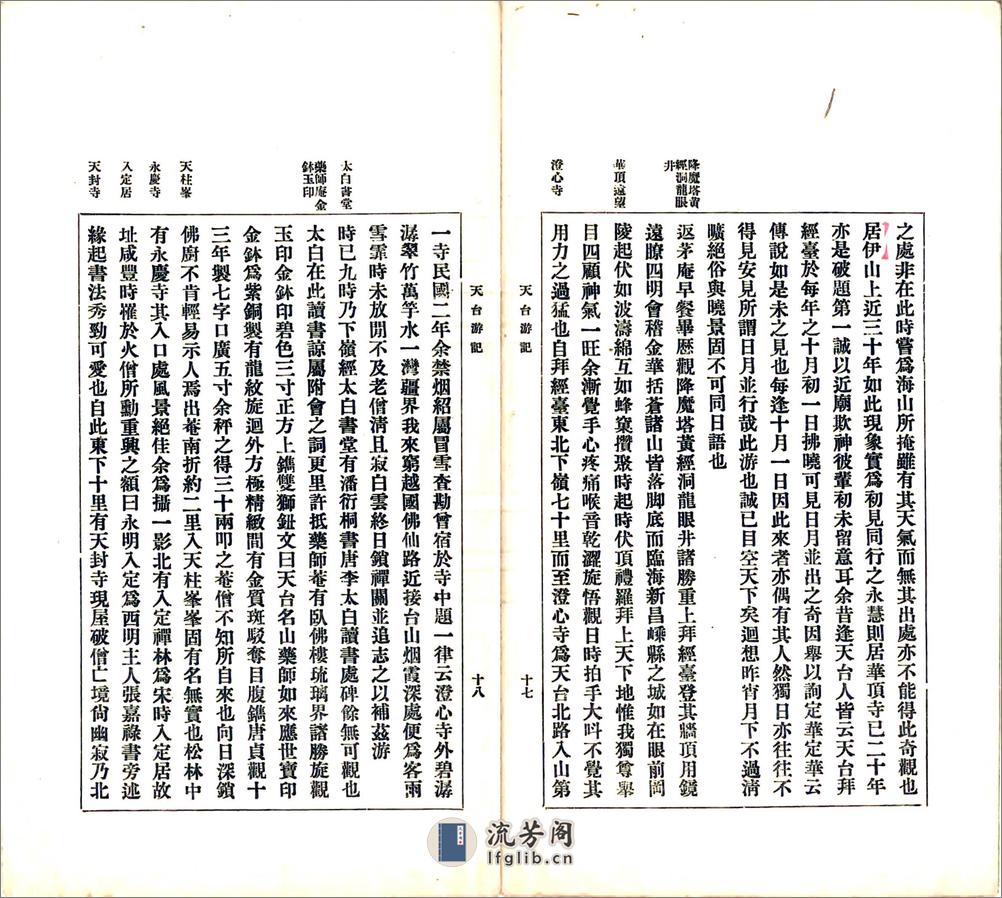 降魔塔黃
經洞龍眼
井
華頂遠望
澄心寺
之處非在此時嘗爲海山所掩雖有其天氣而無其出處亦不能得此奇觀也
居伊山上近三十年如此現象實爲初見同行之永慧則居華頂寺已二十年
亦是破題第一誠以近廟欺神彼輩初未留意耳余昔逢天台人皆云天台拜
經臺於每年之十月初一日拂曉可見日月並出之奇因舉以詢定華定華云
傳說如是未之見也每逢十月一日因此來者亦偶有其人然獨日亦往往不
得見安見所謂日月並行哉此游也誠已目空天下矣迴想昨宵月下不過淸
曠絕俗與曉景固不可同日語也
返茅庵早餐畢歷觀降魔塔黃經洞龍眼井諸勝重上拜經臺登其牆頂用鏡
遠瞭四明會稽金華括蒼諸山皆落脚底而臨海新昌嵊縣之城如在眼前岡
陵起伏如波濤綿亙如蜂窠攢聚時起時伏頂禮羅拜上天下地惟我獨尊舉
目四顧神氣一旺余漸覺手心疼痛喉音乾澀旋悟觀日時拍手大呌不覺其
用力之過猛也自拜經臺東北下嶺七十里而至澄心寺爲天台北路入山第
天台游記
十七
天台游記
十八
太白書堂
藥師庵金
鉢玉印
天柱峯
永慶寺
入定居
天封寺
一寺民國二年余禁烟紹屬冒雪查勘曾宿於寺中題一律云澄心寺外碧潺
潺翠竹萬竿水一灣疆界我來窮越國佛仙路近接台山烟霞深處便爲客雨
雪霏時未放閒不及老僧淸且寂白雲終日鎖禪關並追志之以補茲游
時已九時乃下嶺經太白書堂有潘衍桐書唐李太白讀書處碑餘無可觀也
太白在此讀書諒屬附會之詞更里許抵藥師菴有臥佛樓琉璃界諸勝旋觀
玉印金鉢印碧色三寸正方上鐫雙獅鈕文曰天台名山藥師如來應世寶印
金鉢爲紫銅製有龍紋旋迴外方極精緻間有金質斑駁奪目腹鐫唐貞觀十
三年製七字口廣五寸余秤之得三十兩叩之菴僧不知所自來也向日深鎖
佛廚不肯輕易示人焉出菴南折約二里入天柱峯峯固有名無實也松林中
有永慶寺其入口處風景絕佳余爲攝一影北有入定禪林爲宋時入定居故
址咸豐時罹於火僧所勳重興之額曰永明入定爲西明主人張嘉祿書旁述
緣起書法秀勁可愛也自此東下十里有天封寺現屋破僧亡境尙幽寂乃北
流芳阁
lfglib.cn